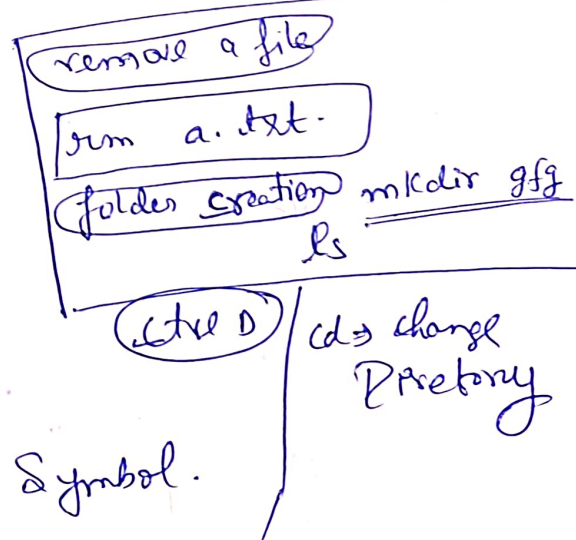 remove a file
rm a.txt.
folder creation mkdir gfg
ls
ctrl D
cd => change
Diretory
Symbol.